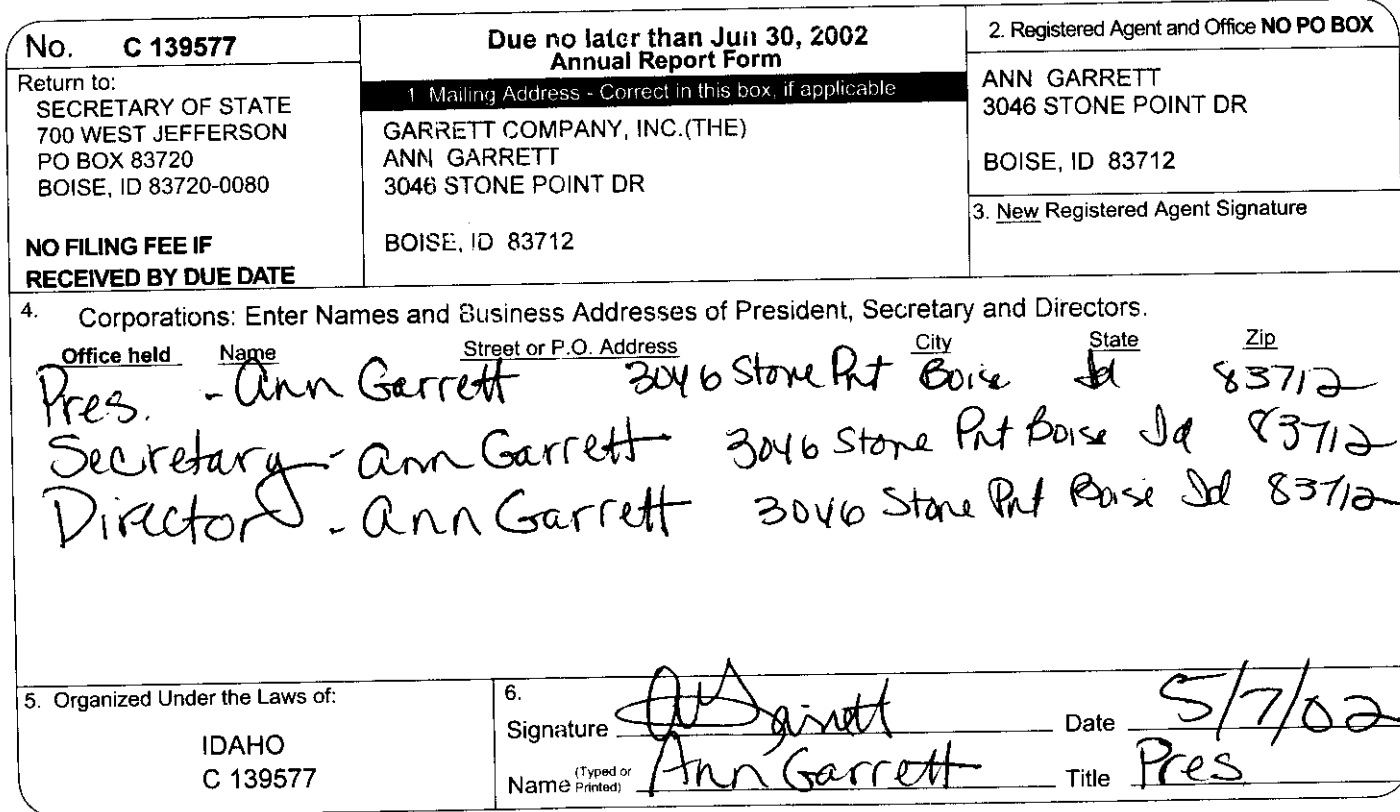 No. C 139577
Return to:
SECRETARY OF STATE
700 WEST JEFFERSON
PO BOX 83720
BOISE, ID 83720-0080
NO FILING FEE IF
RECEIVED BY DUE DATE
Due no later than Jun 30, 2002
Annual Report Form
1 Mailing Address - Correct in this box, if applicable
GARRETT COMPANY, INC.(THE)
ANN GARRETT
3046 STONE POINT DR
BOISE, ID 83712
2. Registered Agent and Office NO PO BOX
ANN GARRETT
3046 STONE POINT DR
BOISE, ID 83712
3. New Registered Agent Signature
4. Corporations: Enter Names and Business Addresses of President, Secretary and Directors.
Office held Name Street or P.O. Address City State Zip
Pres. - Ann Garrett 3046 Stone Pnt Boise Id 83712
Secretary - Ann Garrett 3046 Stone Pnt Boise Id 83712
Director - Ann Garrett 3046 Stone Pnt Boise Id 83712
5. Organized Under the Laws of:
IDAHO
C 139577
6.
Signature A Garrett Date 5/7/02
Name (Typed or Printed) Ann Garrett Title Pres